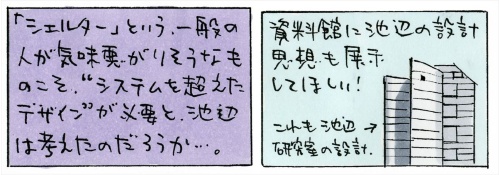 「シェルター」という、一般の
人が気味悪がりそうなも
のこそ、“システムを超えた
デザイン”が必要と、池辺
は考えたのだろうか…。
資料館に池辺の設計
思想も展示
してほしい!
これも池辺→
研究室の設計.